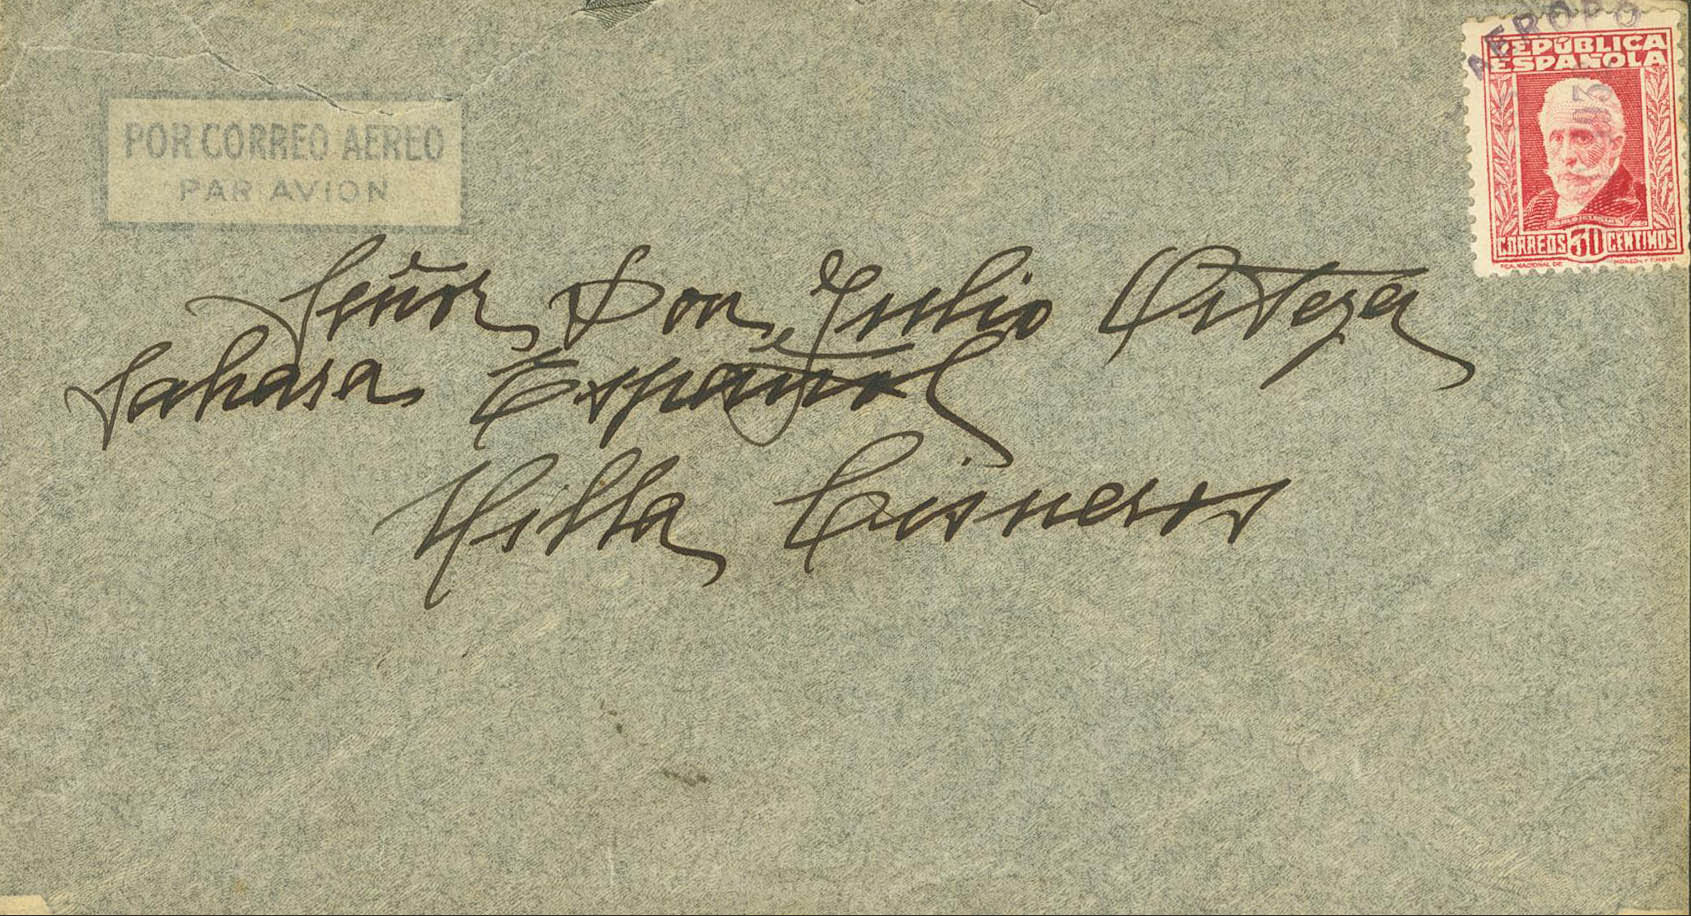 AEROPO
REPÚBLICA
ESPAÑOLA
POR CORREO AEREO
PAR AVION
CORREOS 30 CENTIMOS
Señor Don Julio Ortega
Sahara Español
Villa Cisneros